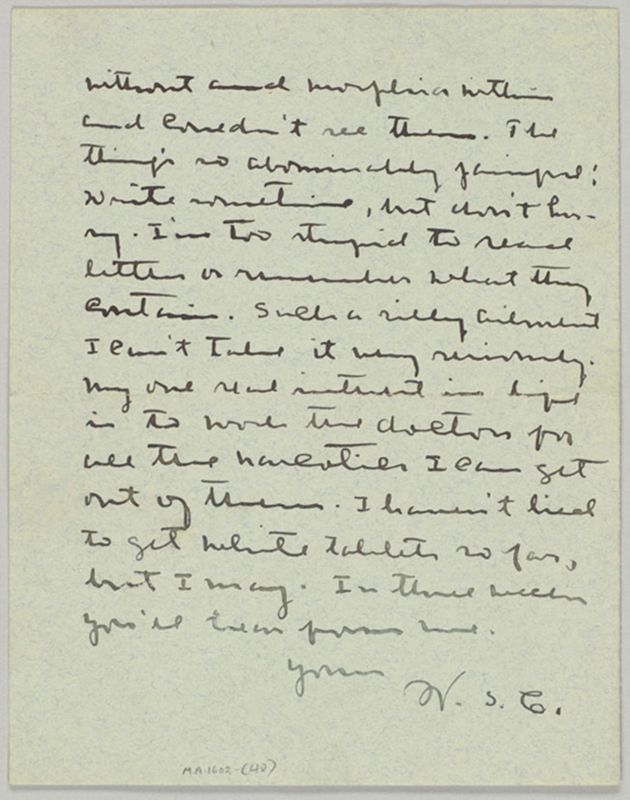 without and morphia within
and couldn't see them. The
thing's so abominably painful!
Write sometime, but don't hur-
ry. I'm too stupid to read
letters or remember what they
contain. Such a silly ailment
I can't take it very seriously.
My one real interest in life
is to work the doctors for
all the narcotics I can get
out of them. I haven't lied
to get white tablets so far,
but I may. In three weeks
you'll hear from me.
Yours
W. S. C.
MA 1602-(40)